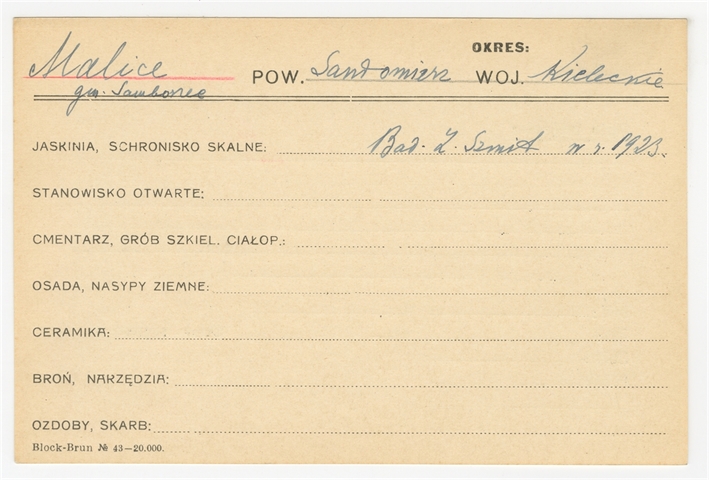 OKRES:
Malice POW. Sandomierz WOJ. Kieleckie
gm. Samborzec
JASKINIA, SCHRONISKO SKALNE: Bad. Z. Szmit w r. 1923.
STANOWISKO OTWARTE:
CMENTARZ, GRÓB SZKIEL. CIAŁOP.:
OSADA, NASYPY ZIEMNE:
CERAMIKA:
BROŃ, NARZĘDZIA:
OZDOBY, SKARB:
Block-Brun № 43—20.000.